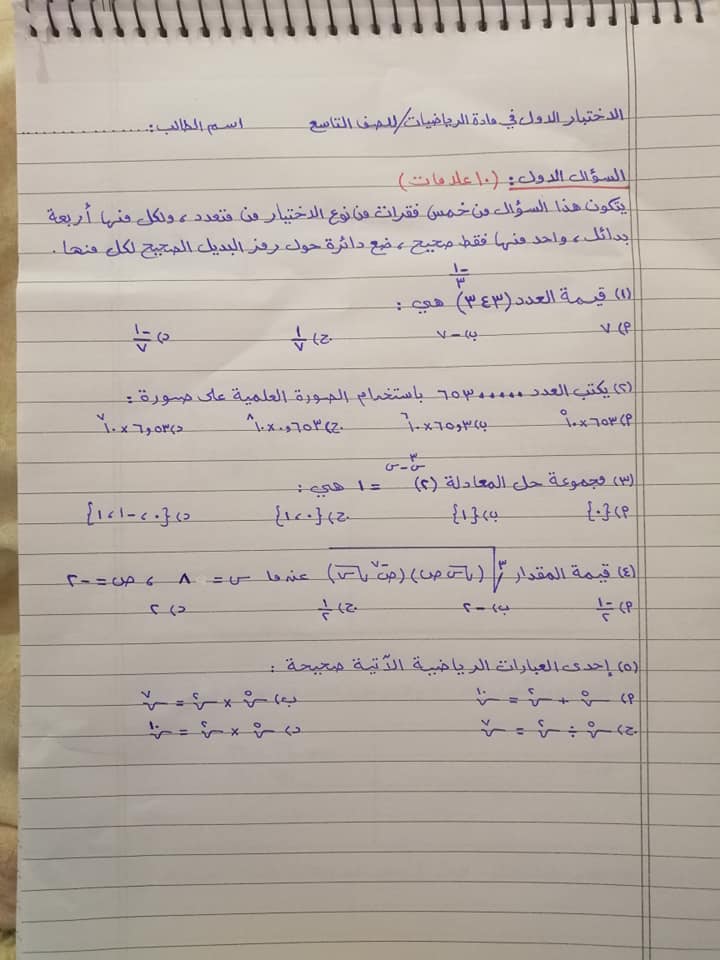 الاختبار الاول في مادة الرياضيات/ للصف التاسع      اسم الطالب: ....................
السؤال الاول: (١٠ علامات)
يتكون هذا السؤال من خمس فقرات من نوع الاختيار من متعدد، ولكل منها أربعة
بدائل، واحد منها فقط صحيح، ضع دائرة حول رمز البديل الصحيح لكل منها.
(١) قيمة العدد (٣٤٣)^(-١/٣) هي:
أ) ٧      ب) -٧      ج) ١/٧      د) -١/٧
(٢) يكتب العدد ٦٥٣٠٠٠٠٠ باستخدام الصورة العلمية على صورة:
أ) ٦٥٣×١٠^٥      ب) ٦٥,٣×١٠^٦      ج) ٠,٦٥٣×١٠^٨      د) ٦,٥٣×١٠^٧
(٣) مجموعة حل المعادلة (٢)^(س^٣-س) = ١ هي:
أ) {٠}      ب) {١}      ج) {٠، ١}      د) {٠، -١، ١}
(٤) قيمة المقدار عندما س = ٨ ، ص = -٢
أ) -١/٢      ب) -٢      ج) ١/٢      د) ٢
(٥) إحدى العبارات الرياضية الآتية صحيحة:
أ) س^٥ + س^٢ = س^١٠      ب) س^٥ × س^٢ = س^٧
ج) س^٥ ÷ س^٢ = س^٧      د) س^٥ × س^٢ = س^١٠